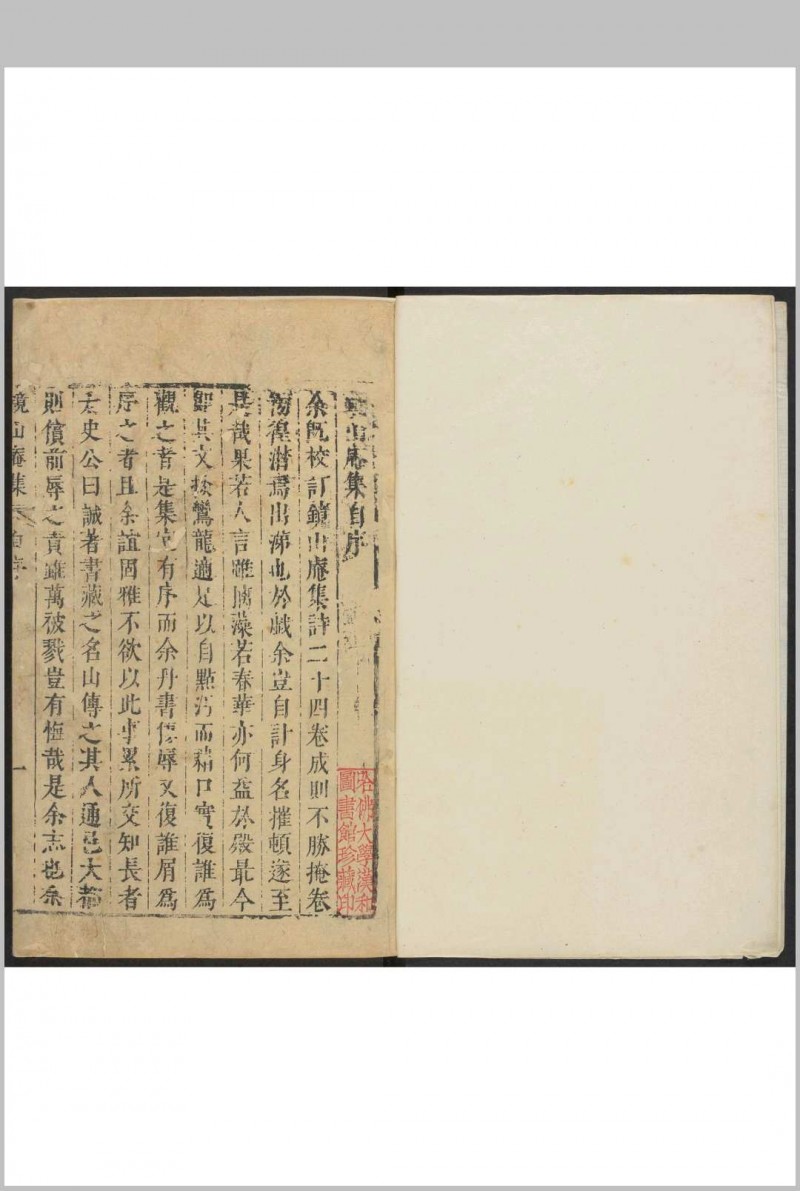 鏡山庵集自序
余既校訂鏡山庵集詩二十四卷成則不勝掩卷
徬徨潸焉出涕也於戲余豈自計身名摧頓遂至
是哉果若人言雖摛藻若春華亦何益於殿最今
即其文掞鸞龍適足以自點污而藉口實復誰爲
觀之者是集宜有序而余丹書僇辱又復誰屑爲
序之者且余誼固雅不欲以此事累所交知長者
太史公曰誠著書藏之名山傳之其人通邑大都
則償前辱之責雖萬被戮豈有悔哉是余志也余
鏡山庵集 自序 一
哈佛大學漢和
圖書館珍藏印